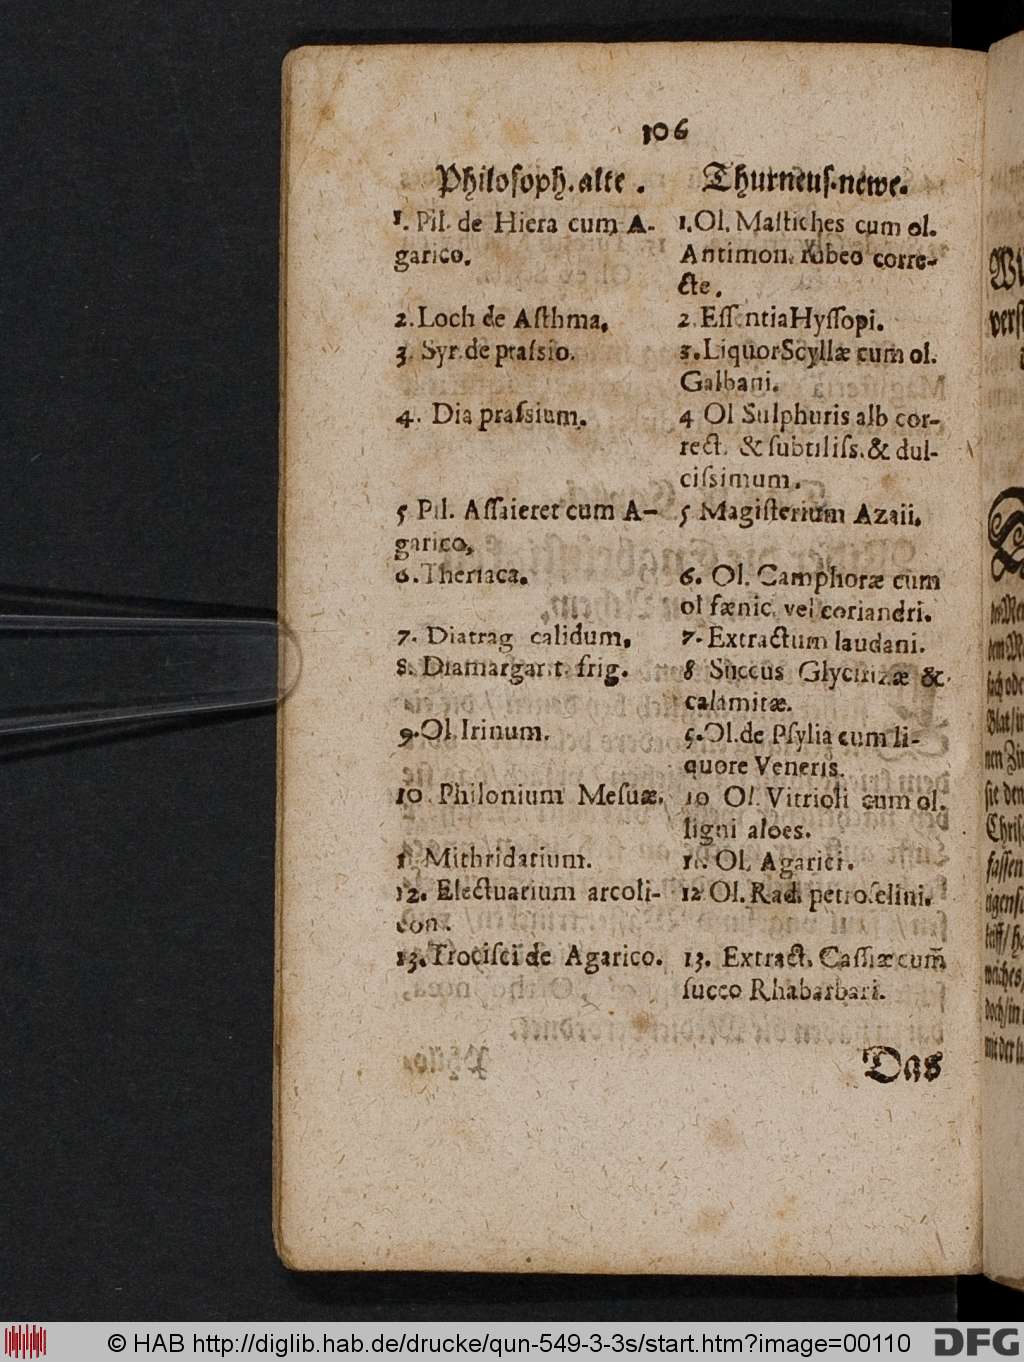 106
Philosoph. alte .
1. Pil. de Hiera cum A-
garico.
2. Loch de Asthma.
3. Syr. de prassio.
4. Dia prassium.
5 Pil. Assaieret cum A-
garico,
6. Theriaca.
7. Diatrag calidum,
8. Diamargarit. frig.
9. Ol. Irinum.
10. Philonium Mesuæ.
11. Mithridatium.
12. Electuarium arcoli-
con.
13. Trocisci de Agarico.
Thurneus. newe.
1. Ol. Mastiches cum ol.
Antimon. Rubeo corre-
cte.
2. Essentia Hyssopi.
3. Liquor Scyllæ cum ol.
Galbani.
4 Ol Sulphuris alb cor-
rect. & subtiliss. & dul-
cissimum.
5 Magisterium Azaii.
6. Ol. Camphoræ cum
ol fœnic. vel coriandri.
7. Extractum laudani.
8 Succus Glycirizæ &
calamitæ.
9. Ol. de Psylia cum li-
quore Veneris.
10 Ol. Vitrioli cum ol.
ligni aloes.
11. Ol. Agarici.
12 Ol. Rad. petroselini.
13. Extract. Cassiæ cum̃
succo Rhabarbari.
Das
© HAB http://diglib.hab.de/drucke/qun-549-3-3s/start.htm?image=00110
DFG